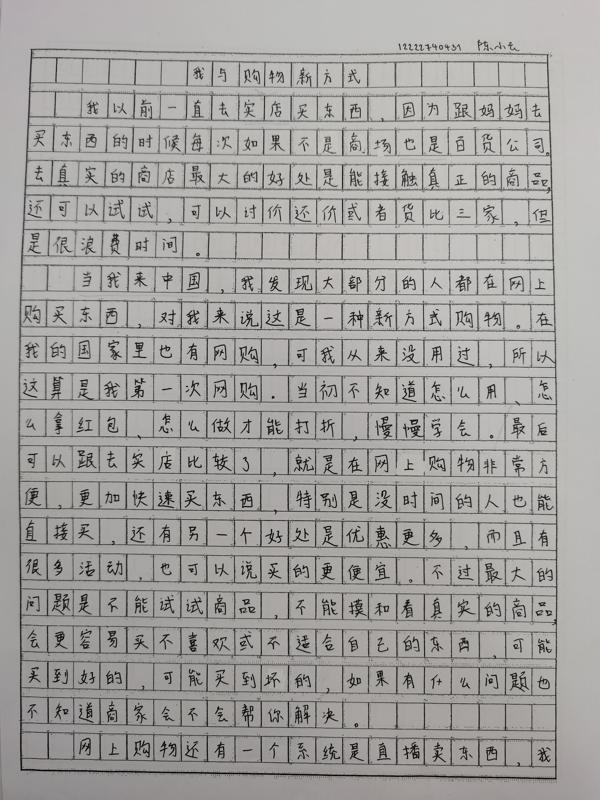 12222740431 陈小云
我与购物新方式
我以前一直去实店买东西,因为跟妈妈去
买东西的时候每次如果不是商场也是百货公司。
去真实的商店最大的好处是能接触真正的商品,
还可以试试,可以讨价还价或者货比三家,但
是很浪费时间。
当我来中国,我发现大部分的人都在网上
购买东西,对我来说这是一种新方式购物。在
我的国家里也有网购,可我从来没用过,所以
这算是我第一次网购.当初不知道怎么用、怎
么拿红包、怎么做才能打折,慢慢学会。最后
可以跟去实店比较了,就是在网上购物非常方
便,更加快速买东西,特别是没时间的人也能
直接买,还有另一个好处是优惠更多,而且有
很多活动,也可以说买的更便宜。不过最大的
问题是不能试试商品,不能摸和看真实的商品,
会更容易买不喜欢或不适合自己的东西,可能
买到好的,可能买到坏的,如果有什么问题也
不知道商家会不会帮你解决。
网上购物还有一个系统是直播卖东西,我